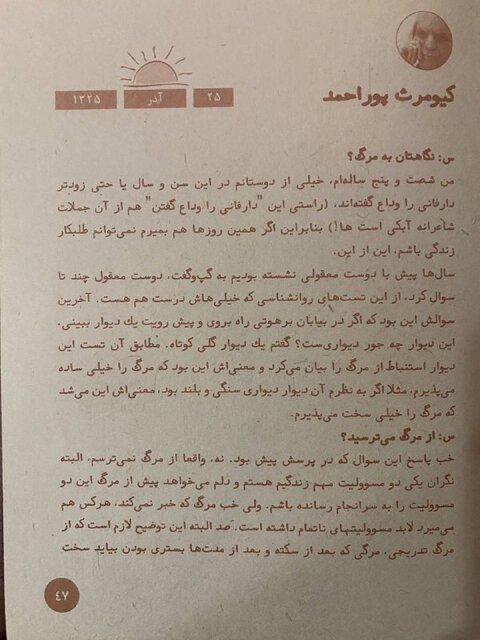 کیومرث پوراحمد
۲۵ آذر ۱۳۲۵
س: نگاهتان به مرگ؟
من شصت و پنج ساله‌ام، خیلی از دوستانم در این سن و سال یا حتی زودتر
دارفانی را وداع گفته‌اند، (راستی این "دارفانی را وداع گفتن" هم از آن جملات
شاعرانه آبکی است ها!) بنابراین اگر همین روزها هم بمیرم نمی‌توانم طلبکار
زندگی باشم، این از این.
سال‌ها پیش با دوست معقولی نشسته بودیم به گپ‌وگفت، دوست معقول چند تا
سوال کرد، از این تست‌های روانشناسی که خیلی‌هاش درست هم هست. آخرین
سوالش این بود که اگر در بیابان برهوتی راه بروی و پیش رویت یك دیوار ببینی،
این دیوار چه جور دیواری‌ست؟ گفتم یك دیوار گلی کوتاه. مطابق آن تست این
دیوار استنباط از مرگ را بیان می‌کرد و معنی‌اش این بود که مرگ را خیلی ساده
می‌پذیرم، مثلا اگر به نظرم آن دیوار دیواری سنگی و بلند بود، معنی‌اش این می‌شد
که مرگ را خیلی سخت می‌پذیرم.
س: از مرگ می‌ترسید؟
خب پاسخ این سوال که در پرسش پیش بود. نه، واقعا از مرگ نمی‌ترسم، البته
نگران یکی دو مسوولیت مهم زندگیم هستم و دلم می‌خواهد پیش از مرگ این دو
مسوولیت را به سرانجام رسانده باشم. ولی خب مرگ که خبر نمی‌کند، هرکس هم
می‌میرد لابد مسوولیتهای ناتمام داشته است. صد البته این توضیح لازم است که از
مرگ تدریجی، مرگی که بعد از سکته و بعد از مدت‌ها بستری بودن بیاید سخت
۴۷